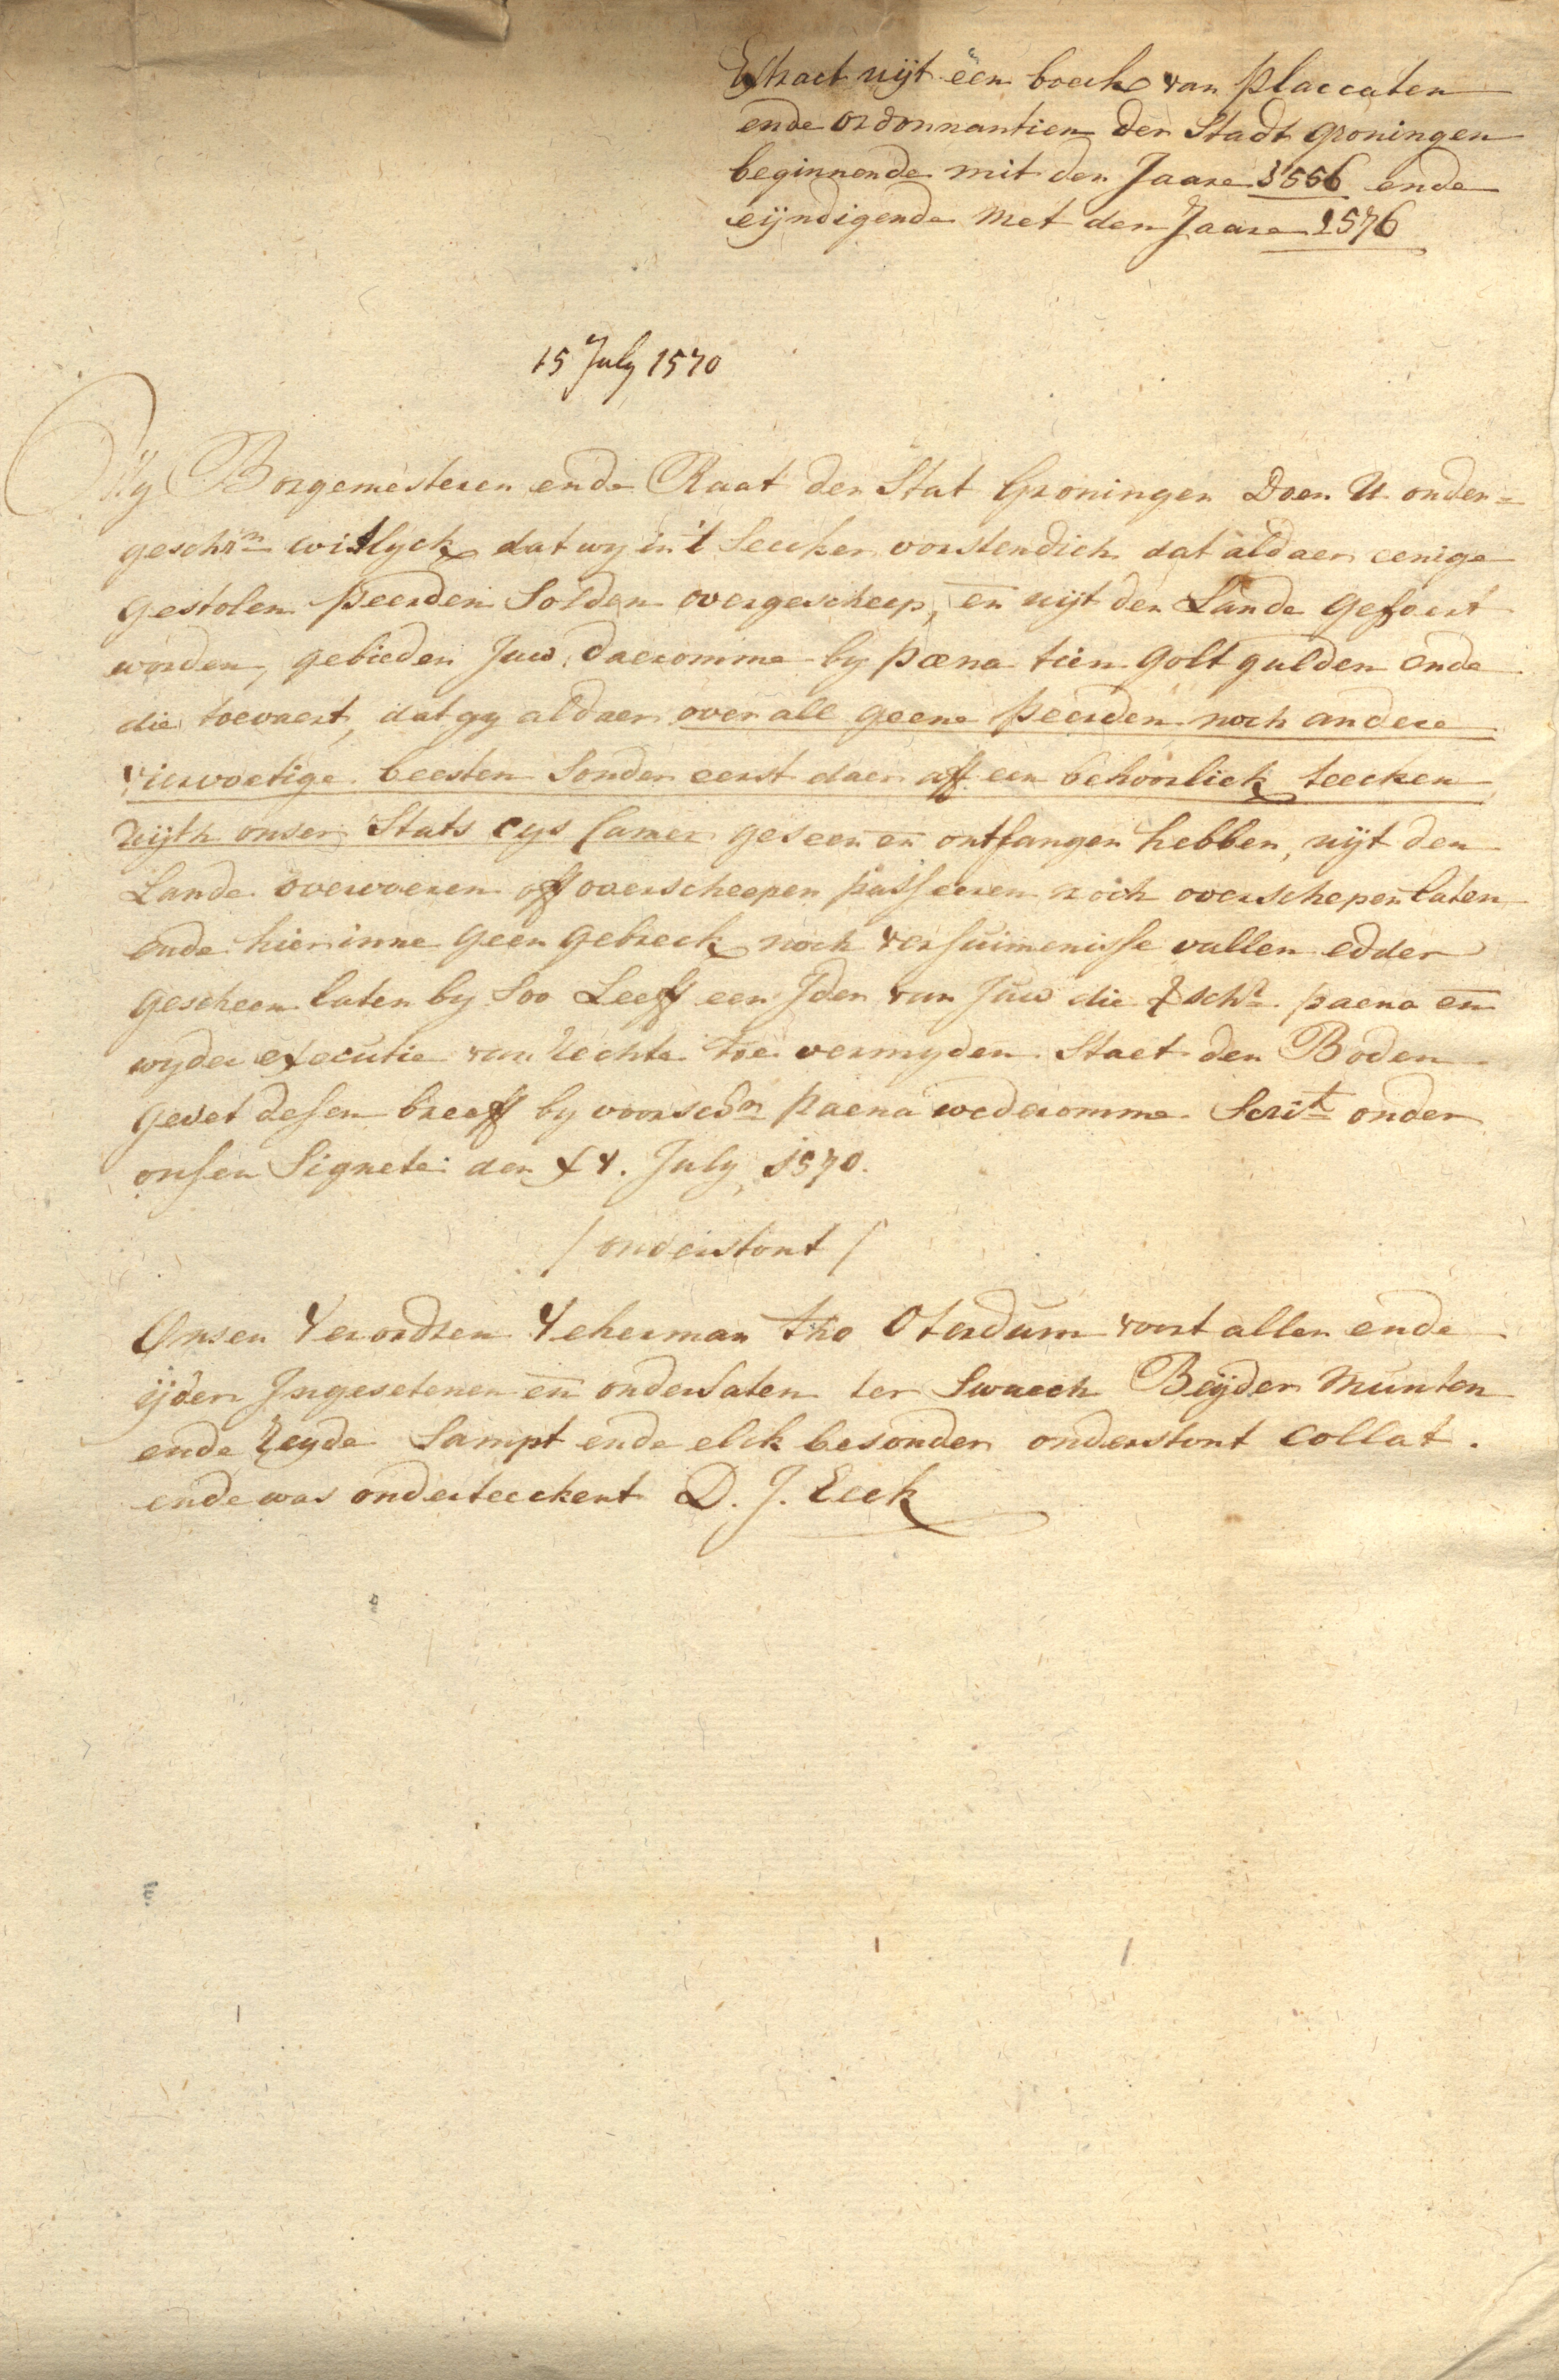 Extract uijt een boeck van placcaten
ende ordonnantien der Stadt groningen
beginnende mit den Jaare 1556 ende
eijndigende met den Jaare 1576
15 July 1570
Wy Borgemesteren ende Raat der Stat Groningen Doen U onder=
geschrn witlyck dat wy in 't seecker vorstendich dat aldaer eenige
gestolen peerden Solden overgescheep, en uijt den Lande gefoert
worden, gebieden Juw daeromme by pæna tien golt gulden ende
die toevaert, dat gy aldaer over all geene peerden noch andere
viervoetige beesten Sonder eerst daer aff een behoorlick teecken
uijth onser Stats cys Camer geseen en ontfangen hebben, uijt den
Lande overvoeren off overscheepen passeeren noch overschepen laten
ende hier inne geen gebreck noch versuimenisse vallen edder
gescheen laten by Soo Leeff een Jder van Juw die schr. paena en
wyder executie van Rechte toe vermyden Staet den Boden
gevet desen breeff by voorschn paena wederomme Scrit onder
onsen Signete den XV. July 1570.
/ onderstont /
Onsen Verordren Veherman tho Oterdum voort allen ende
ijder Ingesetenen en ondersaten ter Swaech Beijder Munten
ende Reyde Sampt ende elck besonder onderstont Collat.
ende was onderteeckent D. J. Eeck